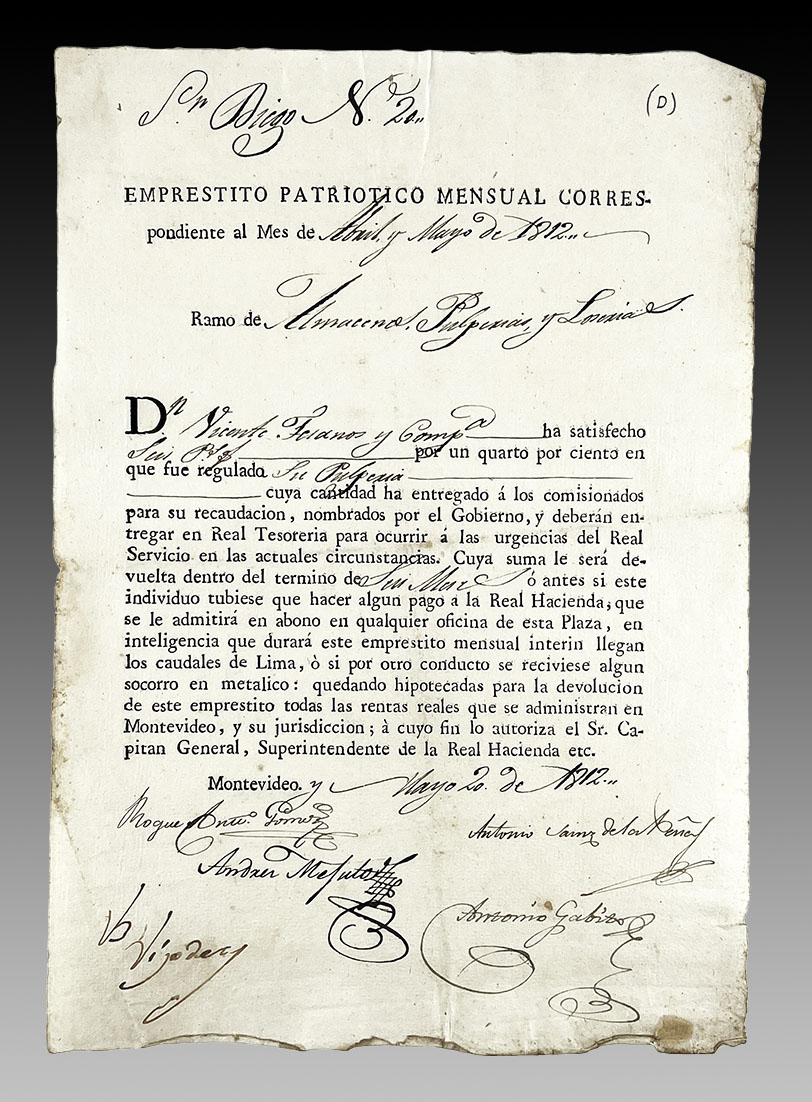 Sn. Diego N.º 20,,
(D)
EMPRESTITO PATRIOTICO MENSUAL CORRES-
pondiente al Mes de Abril, y Mayo de 1812,,
Ramo de Almacenes, Pulperias, y Loserias.
Dn. Vicente y Compa ha satisfecho
Seis Ps. fs. por un quarto por ciento en
que fue regulada Su Pulperia
cuya cantidad ha entregado á los comisionados
para su recaudacion, nombrados por el Gobierno, y deberán en-
tregar en Real Tesoreria para ocurrir á las urgencias del Real
Servicio en las actuales circunstancias. Cuya suma le será de-
vuelta dentro del termino de Seis Meses ó antes si este
individuo tubiese que hacer algun pago à la Real Hacienda, que
se le admitirá en abono en qualquier oficina de esta Plaza, en
inteligencia que durará este emprestito mensual interin llegan
los caudales de Lima, ò si por otro conducto se reciviese algun
socorro en metalico: quedando hipotecadas para la devolucion
de este emprestito todas las rentas reales que se administran en
Montevideo, y su jurisdiccion; à cuyo fin lo autoriza el Sr. Ca-
pitan General, Superintendente de la Real Hacienda etc.
Montevideo. y Mayo 20. de 1812,,
Roque Anto. Gomez
Antonio Sainz de la Peña
Andres
Antonio Gabito
Vo
Vigodet